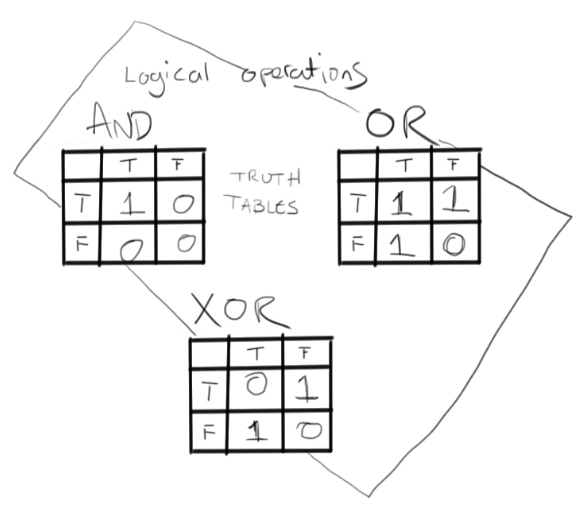 Logical operations
AND
T F
T 1 0
F 0 0
TRUTH
TABLES
OR
T F
T 1 1
F 1 0
XOR
T F
T 0 1
F 1 0